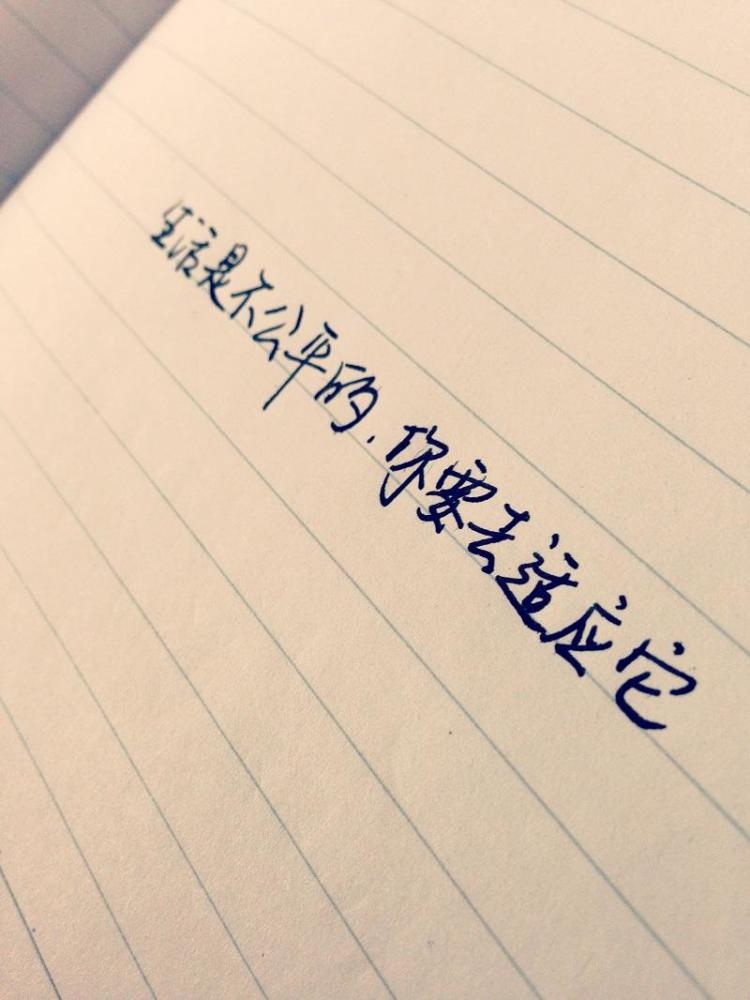 生活是不公平的，你要去适应它